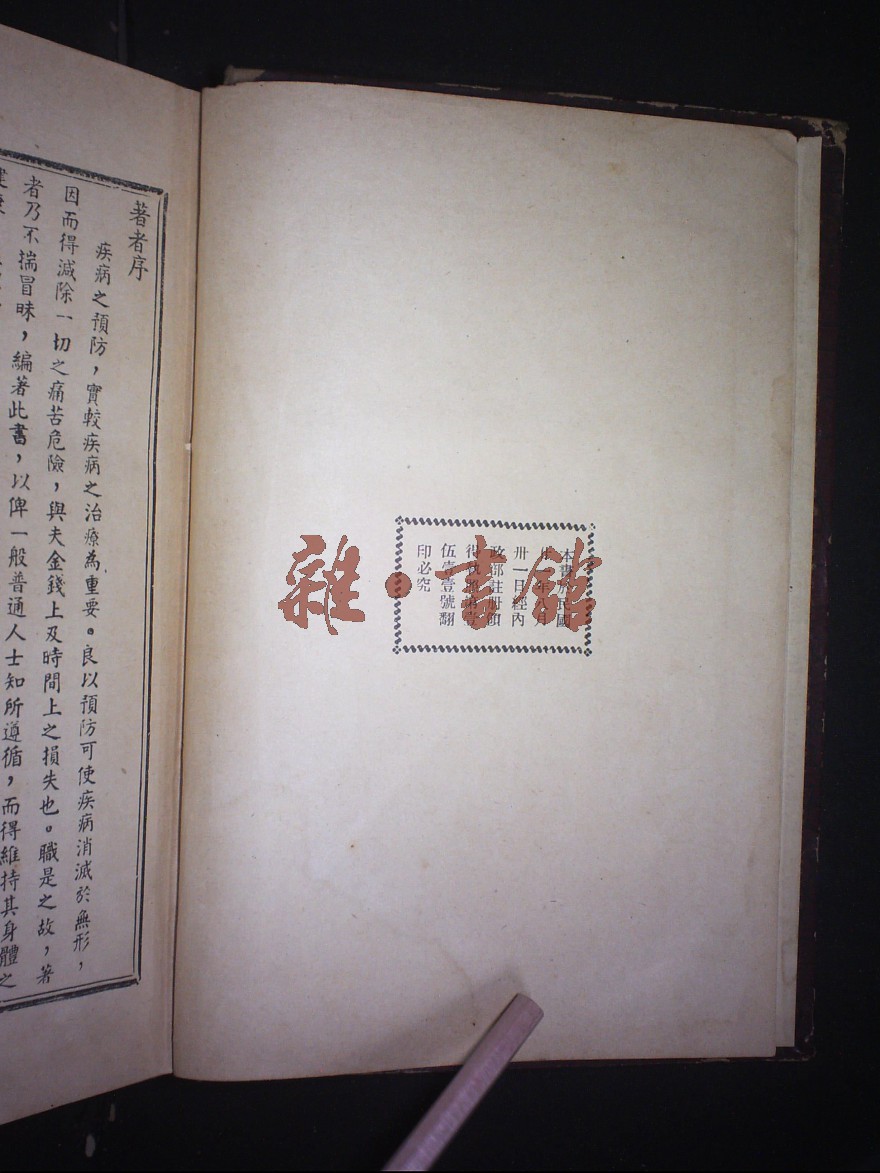 本書於民國
廿一年八月
卅一日經內
政部註冊領
得執照第壹
伍壹壹號翻
印必究
雜·書館
著者序
疾病之預防，實較疾病之治療為重要。良以預防可使疾病消滅於無形，
因而得減除一切之痛苦危險，與夫金錢上及時間上之損失也。職是之故，著
者乃不揣冒昧，編著此書，以俾一般普通人士知所遵循，而得維持其身體之
健康